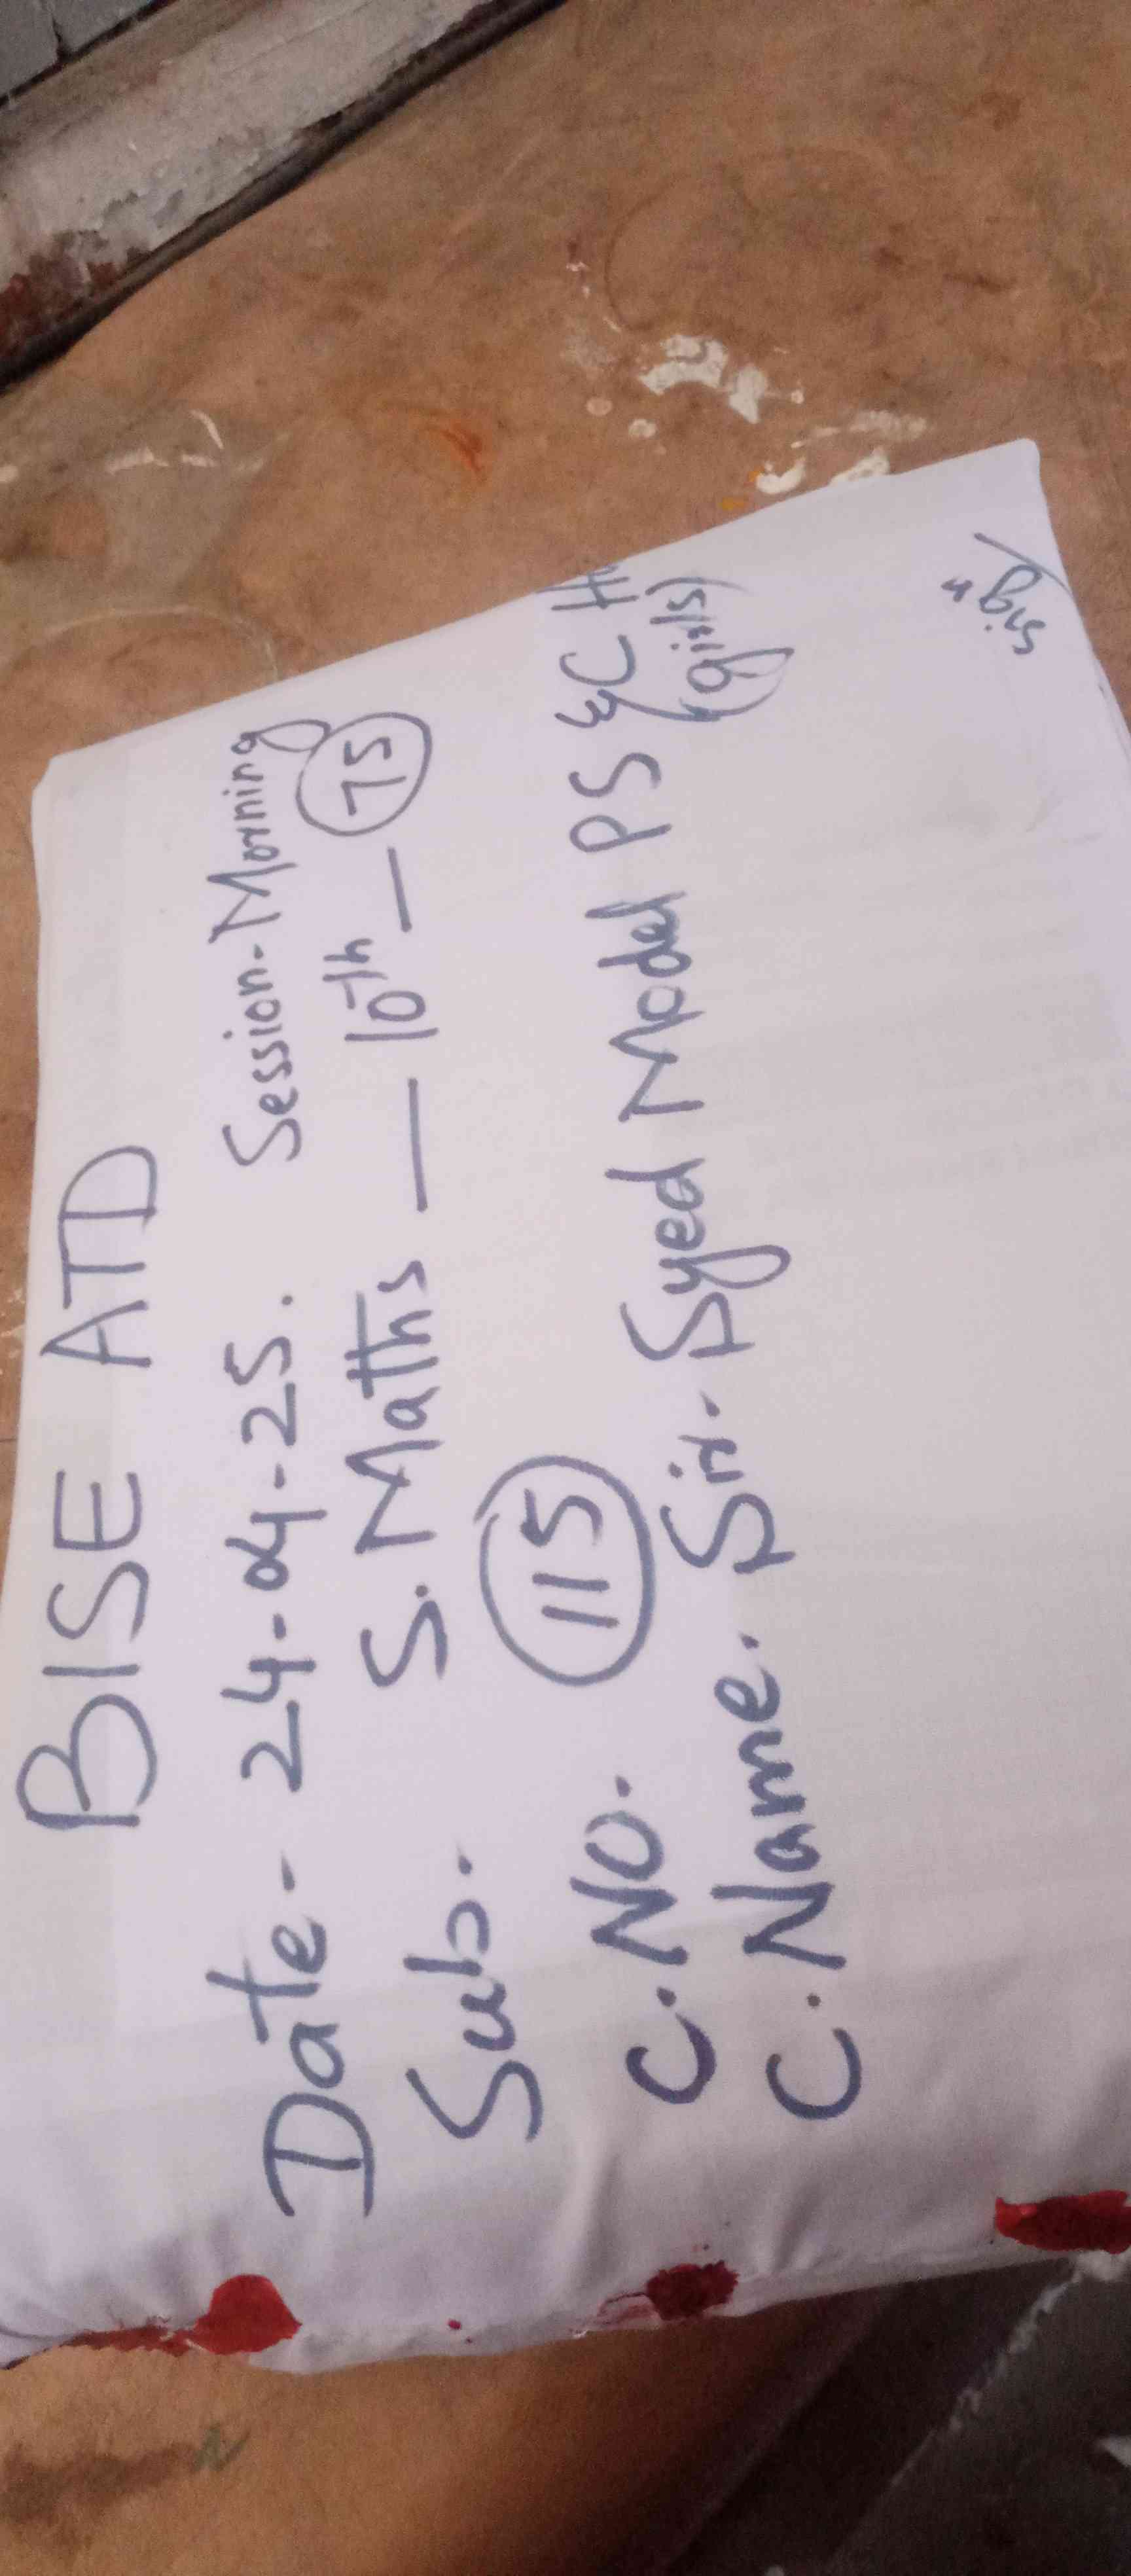 BISE ATD
Date- 24-04-25. Session-Morning
Sub. S. Maths — 10th — 75
C.NO. 115
C.Name. Sir Syed Model PS & C
(girls)
sign